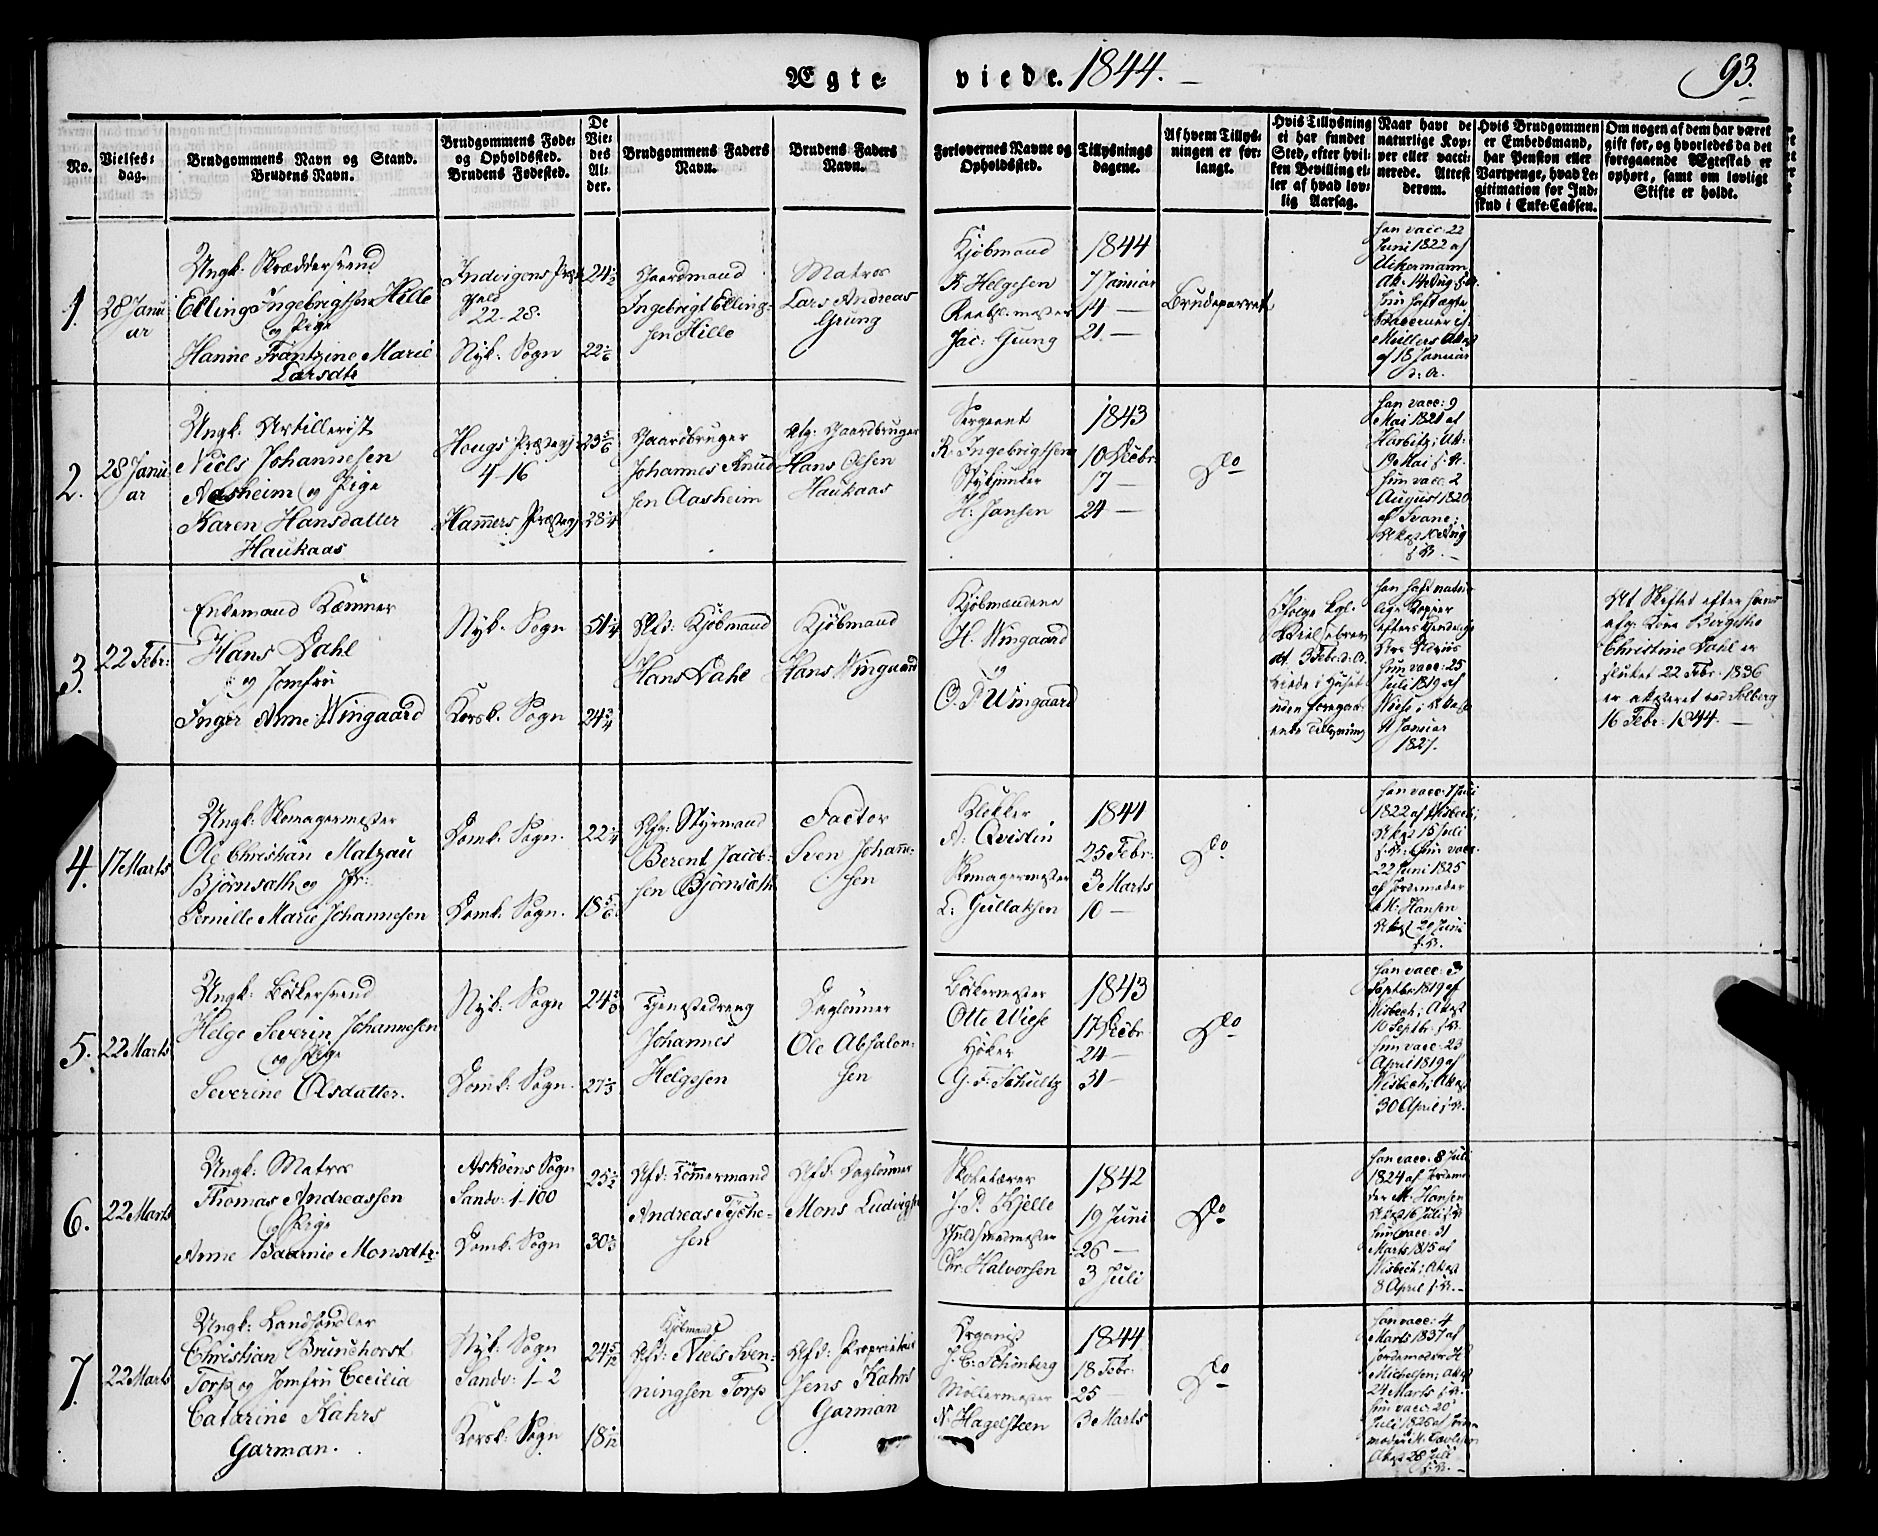 Ægte viede. 1844.
93.
No.
Vielses-
dag.
Brudgommens Navn og Stand.
Brudens Navn.
Brudgommens Føde-
og Opholdssted.
Brudens Fødested.
De
Vie-
des
Al-
der.
Brudgommens Faders
Navn.
Brudens Faders
Navn.
Forlovernes Navne og
Opholdssted.
Tillysnings
dagene.
Af hvem Tillys-
ningen er for-
langt.
Hvis Tillysning
ei har fundet
Sted, efter hvil-
ken Bevilling el-
ler af hvad lov-
lig Aarsag.
Naar havt de
naturlige Kop-
per eller vacci-
nerede. Attest
derom.
Hvis Brudgommen
er Embedsmand,
har Pension eller
Vartpenge, hvad Le-
gitimation for Ind-
skud i Enke-Cassen.
Om nogen af dem har været
gift før, og hvorledes da det
foregaaende Ægteskab er
ophørt, samt om lovligt
Skifte er holdt.
1.
28 Janu
ar
Ungk. Skræddersvend
Elling Ingebrigtsen Hille
og Pige
Hanne Frantzine Marie
Larsdtr
Indvigens Præst
gield
22-28.
Nyk. Sogn
24 1/2
22 1/6
Gaardmand
Ingebrigt Elling-
sen Hille
Matros
Lars Andreas
Grung
Kjøbmand
R Helgesen
Jac: Grung
1844
7 Januar
14 —
21 —
Brudeparret
han vacc: 22
Juni 1822 af
Uckermann
Hun havt ægte
Møllers Attest
af 18 Januar
d: A.
2.
28 Janu
ar
Ungk. Artillerist
Niels Johannesen
Aasheim og Pige
Karen Hansdatter
Haukaas
Hougs Præstegj:
4-16
Hammers Præstegj
23 5/6
28 1/4
Gaardbruger
Johannes Knud
sen Aasheim
Afg: Gaardbruger
Hans Olsen
Haukaas
Sergeant
R. Ingebrigtsen
Stykjunker
H. Jansen
1843
10 Decbr
17 —
24 —
Do
han vacc: 9
Mai 1821 af
Harbitz; Att:
19 Mai s. A.
hun vacc: 2
August 1820
af Svane;
Attest 10 Aug
s. A. —
3.
22 Febr:
Enkemand Kæmner
Hans Dahl
og Jomfru
Inger Anne Wingaard
Nyk. Sogn
Korsk. Sogn
51 1/4
24 3/4
Afd: Kjøbmand
Hans Dahl
Kjøbmand
Hans Wingaard
Kjøbmændene
H. Wingaard
og
O. T Wingaard
Ifølge kgl:
Bevillebrev
dt. 3 Febr: d: A.
viede i Huset
uden foregaa-
ende Tillysning
han havt natur
lige Kopper
hun vacc: 25
Juli 1819 af
Wiese; Attest
11 Januar
1827.
At Skiftet efter hans
afg: Kone Bergithe
Christine Dahl er
sluttet 22 Febr: 1836
er attesteret ved Solberg
16 Febr: 1844. —
4.
17 Marts
Ungk. Skomagermester
Ole Christian Matzau
Bjørnsæth og Jfr:
Pernille Marie Johannesen
Domk. Sogn.
Domk. Sogn.
22 1/4
18 5/6
Afg: Styrmand
Berent Jacob-
sen Bjørnsæth
Factor
Sven Johanne-
sen
Klokker
A. Qvislin
Skomagermester
L: Gullaksen
1844
25 Febr:
3 Marts
10 —
Do
han vacc: 7 Juli
1822 af Wisbech;
Attest 15 Juli
s. A. Hun vacc:
22 Juni 1825
af Jordemoder
M: Hansen
Attest 20 Juni
s. A.
5.
22 Marts
Ungk: Bødkersvend
Helge Severin Johannesen
og Pige
Severine Olsdatter.
Nyk. Sogn
Domk: Sogn.
27 1/3
Tjenestedreng
Johannes
Helgesen
Daglønner
Ole Absalon-
sen
Bødkermester
Otte Wiese
Høker
G. F. Schultz
1843
17 Decbr
24 —
31 —
Do
han vacc: 3
Septbr 1819 af
Wisbech; Attest
10 Septbr: s. A.
hun vacc: 23
April 1819 af
Wisbech; Attest
30 April s. A.
6.
22 Marts
Ungk: Matros
Thomas Andreassen
og Pige
Anne Baarnie Monsdtr:
Askøens Sogn
Sandv: 1-100
Domk: Sogn
25 1/2
30 1/3
Afd: Tømmermand
Andreas Tysche-
sen
Afd: Daglønner
Mons Ludvigsen
J. P. Kjelle
Guldsmedmester
Chr. Halvorsen
1842
19 Juni
26 —
3 Juli
Do
han vacc: 8 Juli
1824 af Jordemo
der M: Hansen
Attest 16 Juli s. A.
hun vacc: 31
Marts 1815 af
Wisbech; Attest
8 April s. A. —
7.
22 Marts
Ungk: Landhandler
Christian Brunchorst
Torp og Jomfru Cecilia
Catarine Kahrs
Garman.
Nyk: Sogn
Sandv: 1-2
Korsk: Sogn
24 5/12
18 1/12
Kjøbmand
Afd: Niels Sven-
ningsen Torp
Afd: Proprietair
Jens Kahrs
Garman
Organist
J. C. Schönberg
Møllermester
N. Hagelsteen
1844
18 Febr:
25 —
3 Marts
Do
han vacc: 4
Marts 1837 af
Jordemoder H
Michelsen; Attest
24 Marts s. A.
hun vacc: 20
Juli 1826 af Jorde
Attest 28 Juli
s. A. —